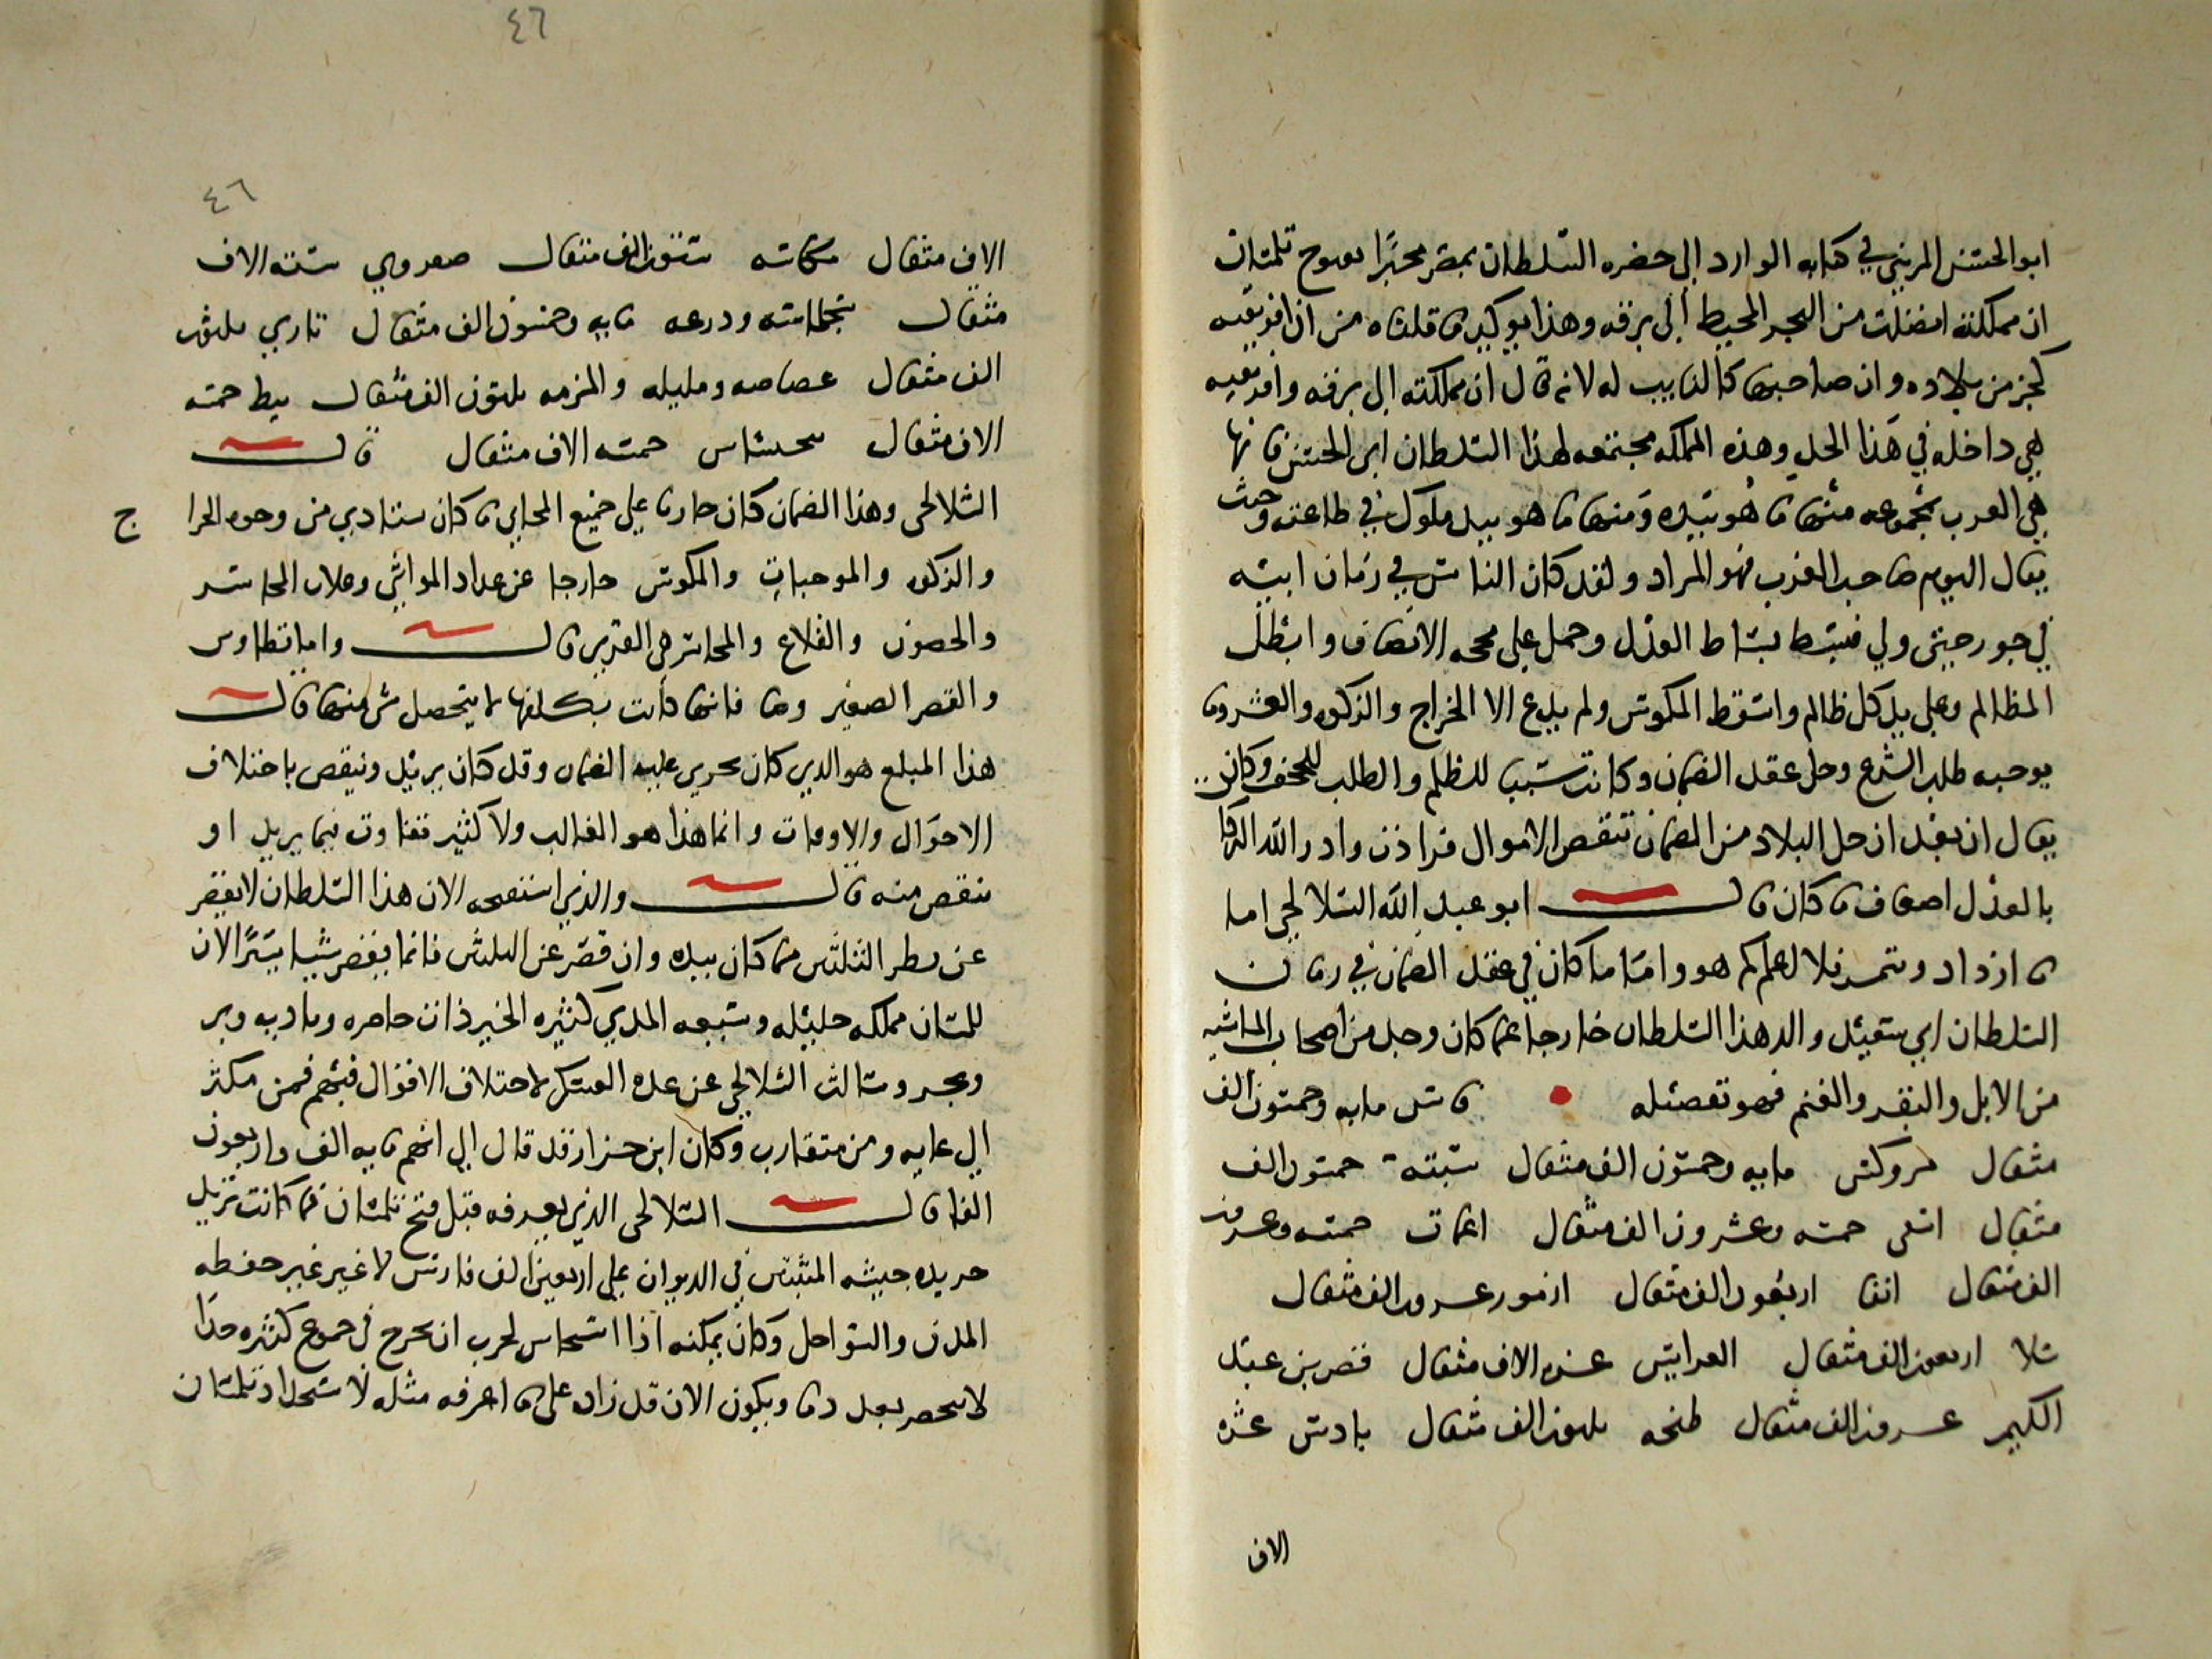 ابو الحسن المريني في كتابه الوارد الى حضره السلطان بمصر مخبرا بفتوح تلمسان
ان مملكته اتصلت من البحر المحيط الى برقه وهذا يوكد ما قلناه من ان افريقيه
كجز من بلاده وان صاحبها كالنايب له لانه قال ان مملكته الى برقه وافريقيه
هي داخله في هذا الحد وهذه المملكه مجتمعه لهذا السلطان ابي الحسن فانها
هي الغرب بمجموعه منها ما هو بيده ومنها ما هو بيد ملوك في طاعته وحيث
يقال اليوم صاحب الغرب فهو المراد ولقد كان الناس في زمان ابيه
في جور حتى ولي فبسط بساط العدل وحمل على محجه الانصاف وابطل
المظالم وعلى يد كل ظالم واسقط المكوس ولم يدع الا الخراج والزكوه والعشر وما
يوجبه طلب الشرع وحل عقد الضمان وكانت سببا للظلم والطلب للمجحف وكان
يقال ان بعد ان حل البلاد من الضمان تنقص الاموال فزادت وادر الله البركا
بالعدل اضعاف ما كان قال ابو عبد الله السلالحي اما
ما ازداد وتثمر فلا اعلم كم هو واما ما كان في عقد الضمان في زمان
السلطان ابي سعيد والد هذا السلطان خارجا عما كان يوجد من اصحاب الماشيه
من الابل والبقر والغنم فهو تفصيله فاس مايه وخمسون الف
مثقال مروكش مايه وخمسون الف مثقال سبته خمسون الف
مثقال اسفى خمسه وعشرون الف مثقال اغمات خمسه وعشرون
الف مثقال انفا اربعون الف مثقال ازمور عشرون الف مثقال
سلا اربعون الف مثقال العرايش عشره الاف مثقال قصر بن عبد
الكريم عشرون الف مثقال طنجه ثلثون الف مثقال بادس عشره
الاف
٤٦
٤٦
الاف مثقال مكناسه ستون الف مثقال صفروي سته الاف
مثقال سجلماسه ودرعه مايه وخمسون الف مثقال تازي ثلثون
الف مثقال غصاصه ومليله والمزمه ثلثون الف مثقال تيط خمسه
الاف مثقال تيجساس خمسه الاف مثقال قال
السلالحي وهذا الضمان كان جاريا على جميع المجابي ما كان يستادي من وجوه الخرا ج
والزكوه والموجبات والمكوس خارجا عن عداد المواشي وغلات المحاشر
والحصون والقلاع والمحاشر هي القرى قال واما تطاون
والقصر الصغير وما فانها كانت بكلفها لا يتحصل شي منها قال
هذا المبلغ هو الذي كان يجري عليه الضمان وقد كان يزيد وينقص باختلاف
الاحوال والاوقات وانما هذا هو الغالب ولا كثير تفاوت فيما يزيد او
ينقص منه قال والذي استفتحه الان هذا السلطان لا يقصر
عن نظر الثلثين مما كان بيده وان قصر عن الثلثين فانما يقصر شيا يسيرا لان
تلمسان مملكه جليله وسيعه المدي كثيره الخير ذات حاضره وباديه وبر
وبحر وسالت السلالحي عن عده العسكر لاختلاف الاقوال فيهم فمن مكثر
الى غايه ومن متقارب وكان ابن حرار قد قال الى انهم مايه الف واربعون
الفا قال السلالحى الذي يعرفه قبل فتح تلمسان فما كانت تزيد
جريده جيشه المثبتين في الديوان على اربعين الف فارس لا غير غير حفظه
المدن والسواحل وكان يمكنه اذا استجاش لحرب ان يخرج في جموع كثيره جدا
لا تحصر بعدد وما ويكون الان قد زاد على ما اعرفه مثله لاستجداد تلمسان